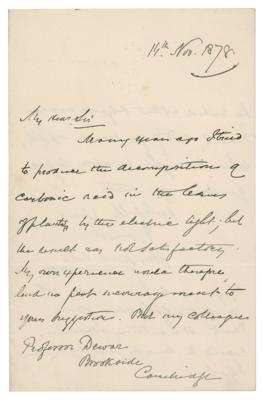 14th Nov. 1878.
My dear Sir
Many years ago I tried
to produce the decomposition of
carbonic acid in the leaves
of plants by the electric light; but
the result was not satisfactory.
My own experience would therefore
lend no great encouragement to
your suggestion. But my colleague
Professor Dewar
Brookside
Cambridge